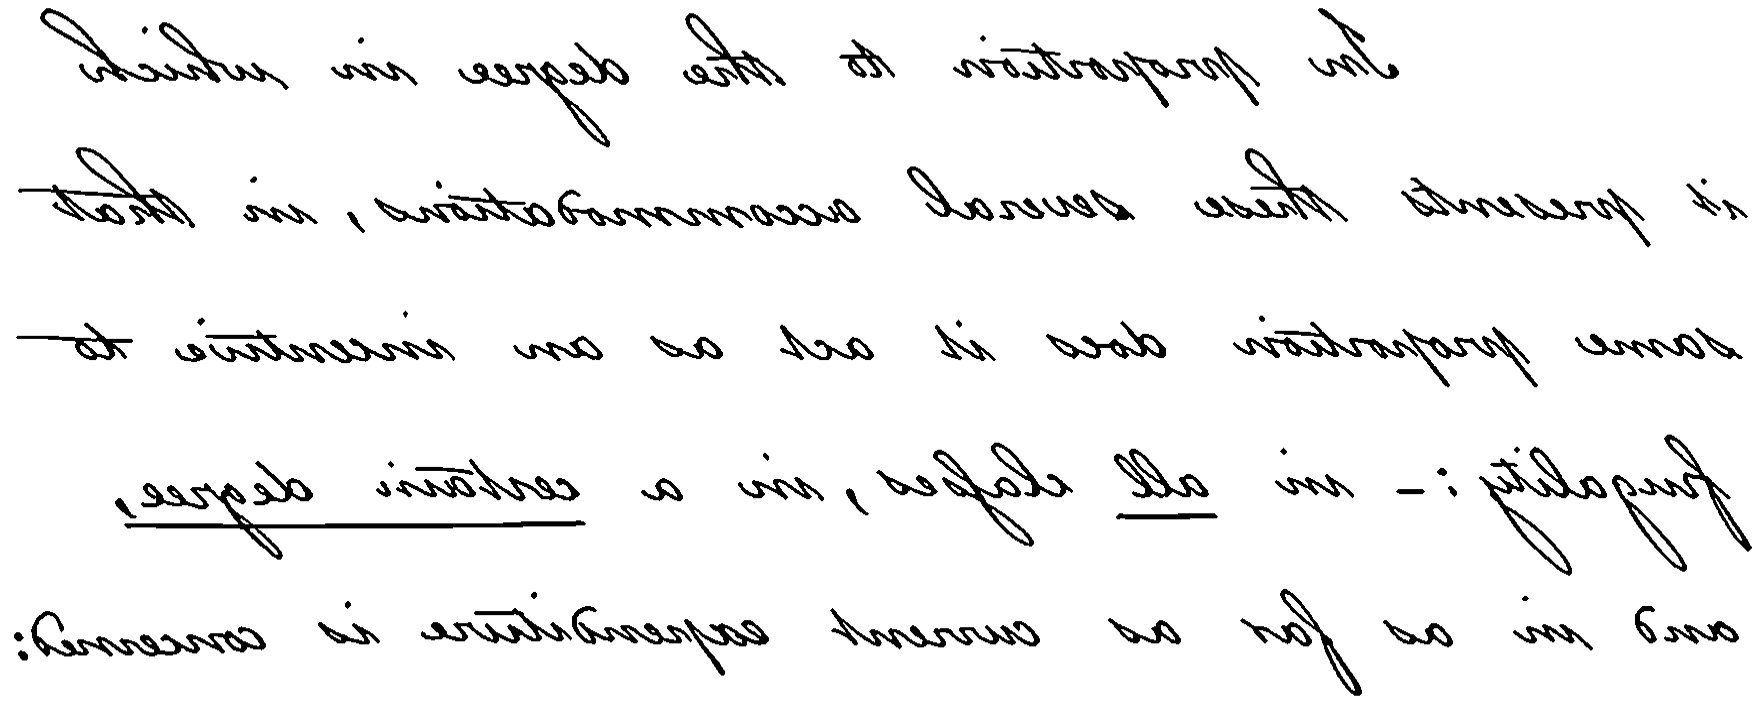 In proportion to the degree in which
it presents these several accommodations, in that
same proportion does it act as an incentive to
frugality: – in all claſses, in a certain degree,
and in as far as current expenditure is concerned: